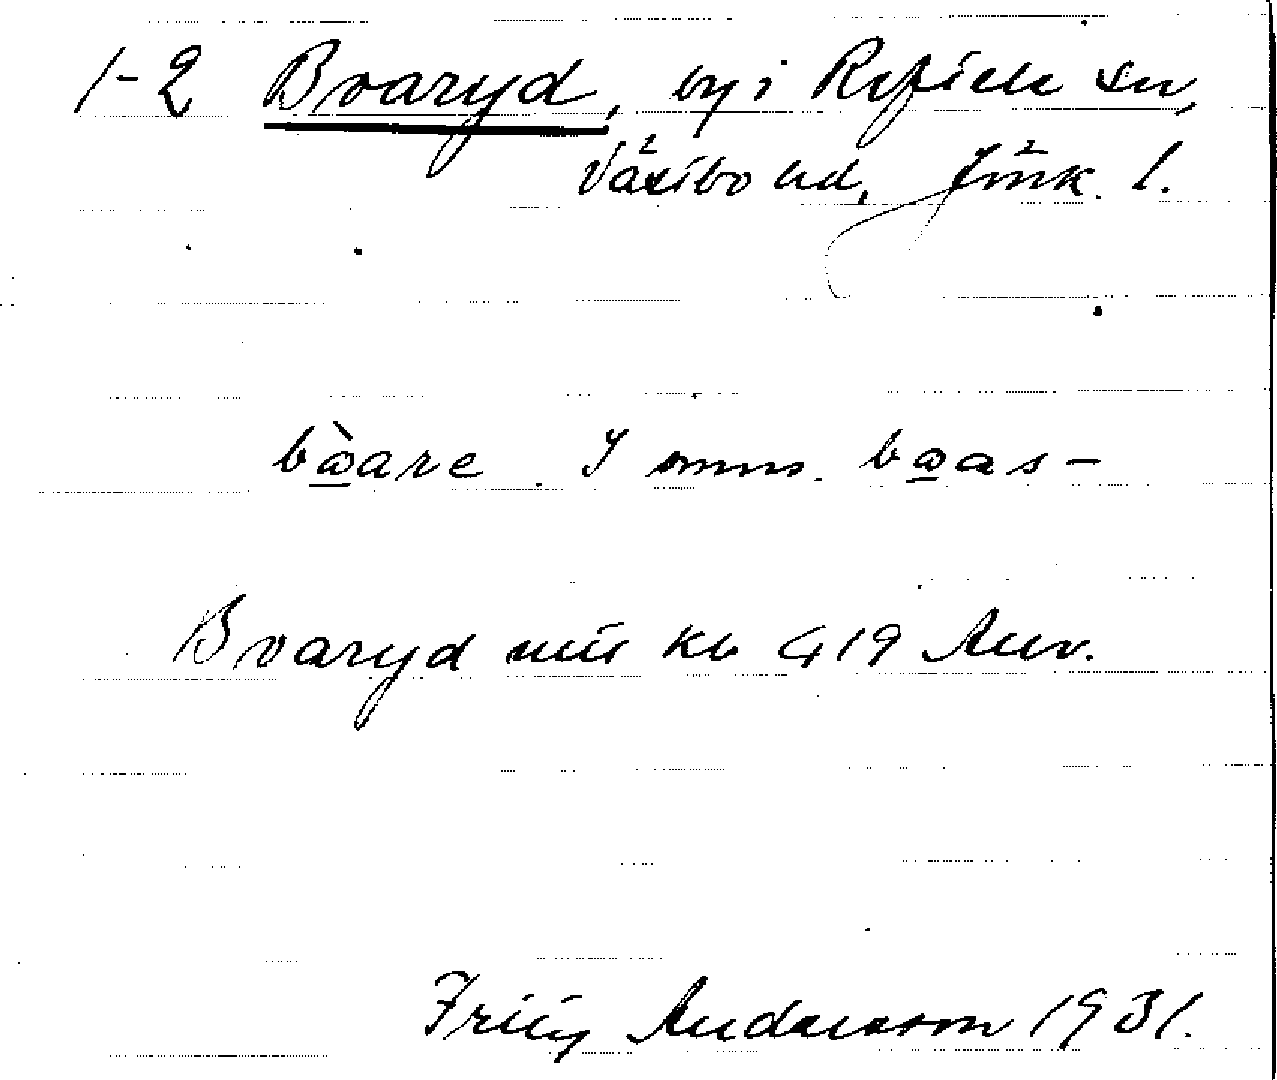 1-2 Bvaryd, by i Reftele sn,
Västbo hd, Jönk. l.
bàare. I smns. baas-
Bvaryd mtl kb 419 Anv.
Fritz Andersson 1931.